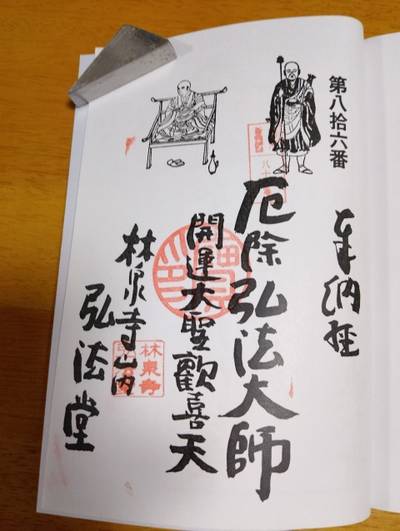 第八拾六番
奉納経
厄除弘法大師
開運大聖歡喜天
林泉寺山内
弘法堂